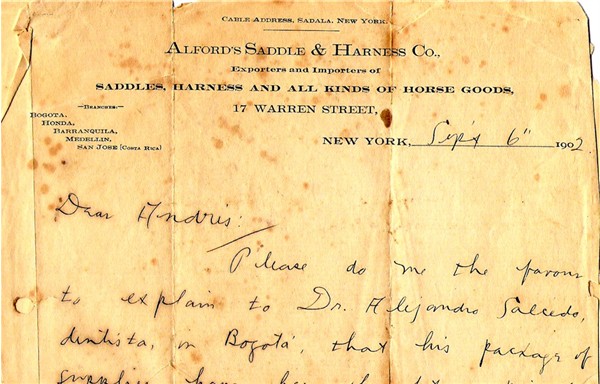 CABLE ADDRESS, SADALA, NEW YORK.
ALFORD'S SADDLE & HARNESS CO.,
Exporters and Importers of
SADDLES, HARNESS AND ALL KINDS OF HORSE GOODS,
17 WARREN STREET,
—BRANCHES:—
BOGOTA,
HONDA,
BARRANQUILA,
MEDELLIN,
SAN JOSE [COSTA RICA]
NEW YORK, Sep's 6" 1902
Dear Andris:
Please do me the favour
to explain to Dr. Alejandro Salcedo,
dentista, in Bogotá, that his package of
supplies have been